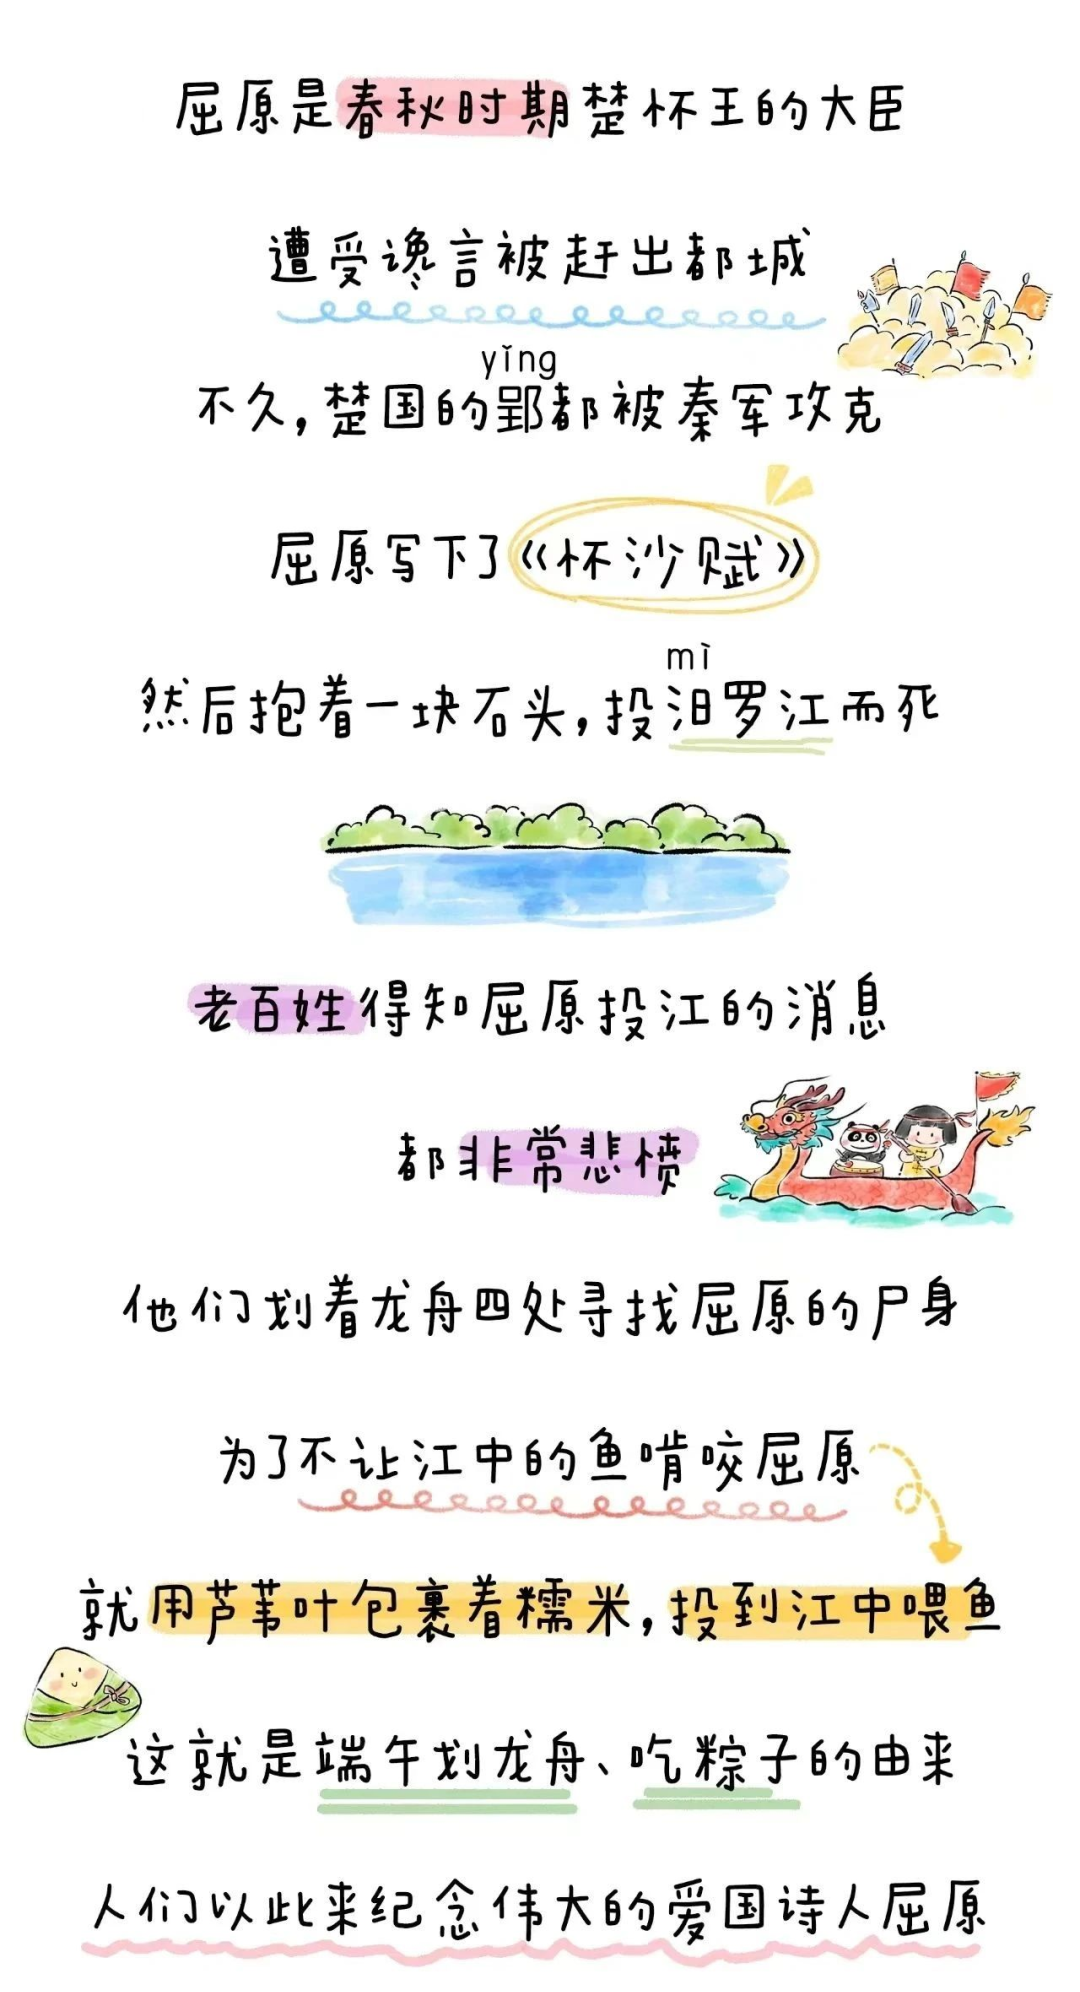 屈原是春秋时期楚怀王的大臣
遭受谗言被赶出都城
yǐng
不久,楚国的郢都被秦军攻克
屈原写下了《怀沙赋》
mì
然后抱着一块石头,投汨罗江而死
老百姓得知屈原投江的消息
都非常悲愤
他们划着龙舟四处寻找屈原的尸身
为了不让江中的鱼啃咬屈原
就用芦苇叶包裹着糯米,投到江中喂鱼
这就是端午划龙舟、吃粽子的由来
人们以此来纪念伟大的爱国诗人屈原